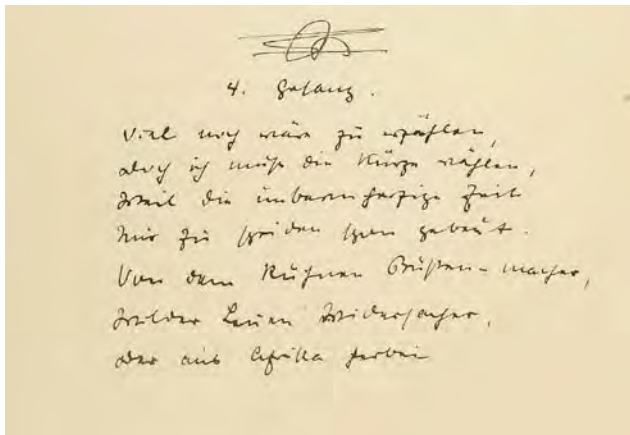 4. Gesang.
Viel noch wäre zu erzählen,
doch ich muß die Kürze wählen,
Weil die unbarmherzige Zeit
Mir zu scheiden schon gebeut.
Von dem Kühnen Büsten-macher,
Wilder Leuen Widersacher,
der aus Afrika herbei